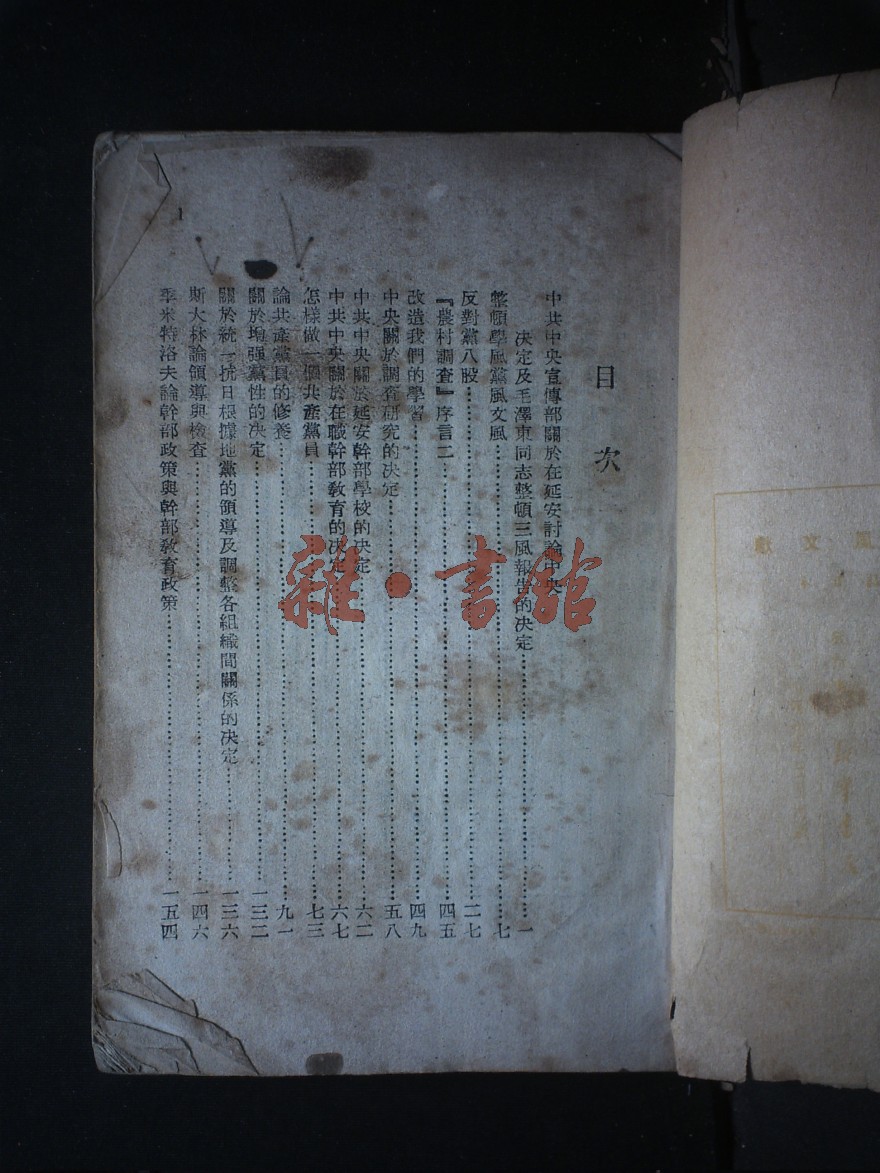 目次
中共中央宣傳部關於在延安討論中央
決定及毛澤東同志整頓三風報告的決定……一
整頓學風黨風文風……七
反對黨八股……二七
『農村調查』序言二……四五
改造我們的學習……四九
中央關於調查研究的決定……五八
中共中央關於延安幹部學校的決定……六二
中共中央關於在職幹部教育的決定……六七
怎樣做一個共產黨員……七三
論共產黨員的修養……九一
關於增强黨性的決定……一三二
關於統一抗日根據地黨的領導及調整各組織間關係的決定……一三六
斯大林論領導與檢查……一四六
季米特洛夫論幹部政策與幹部教育政策……一五四
1
雜·書館
風文獻